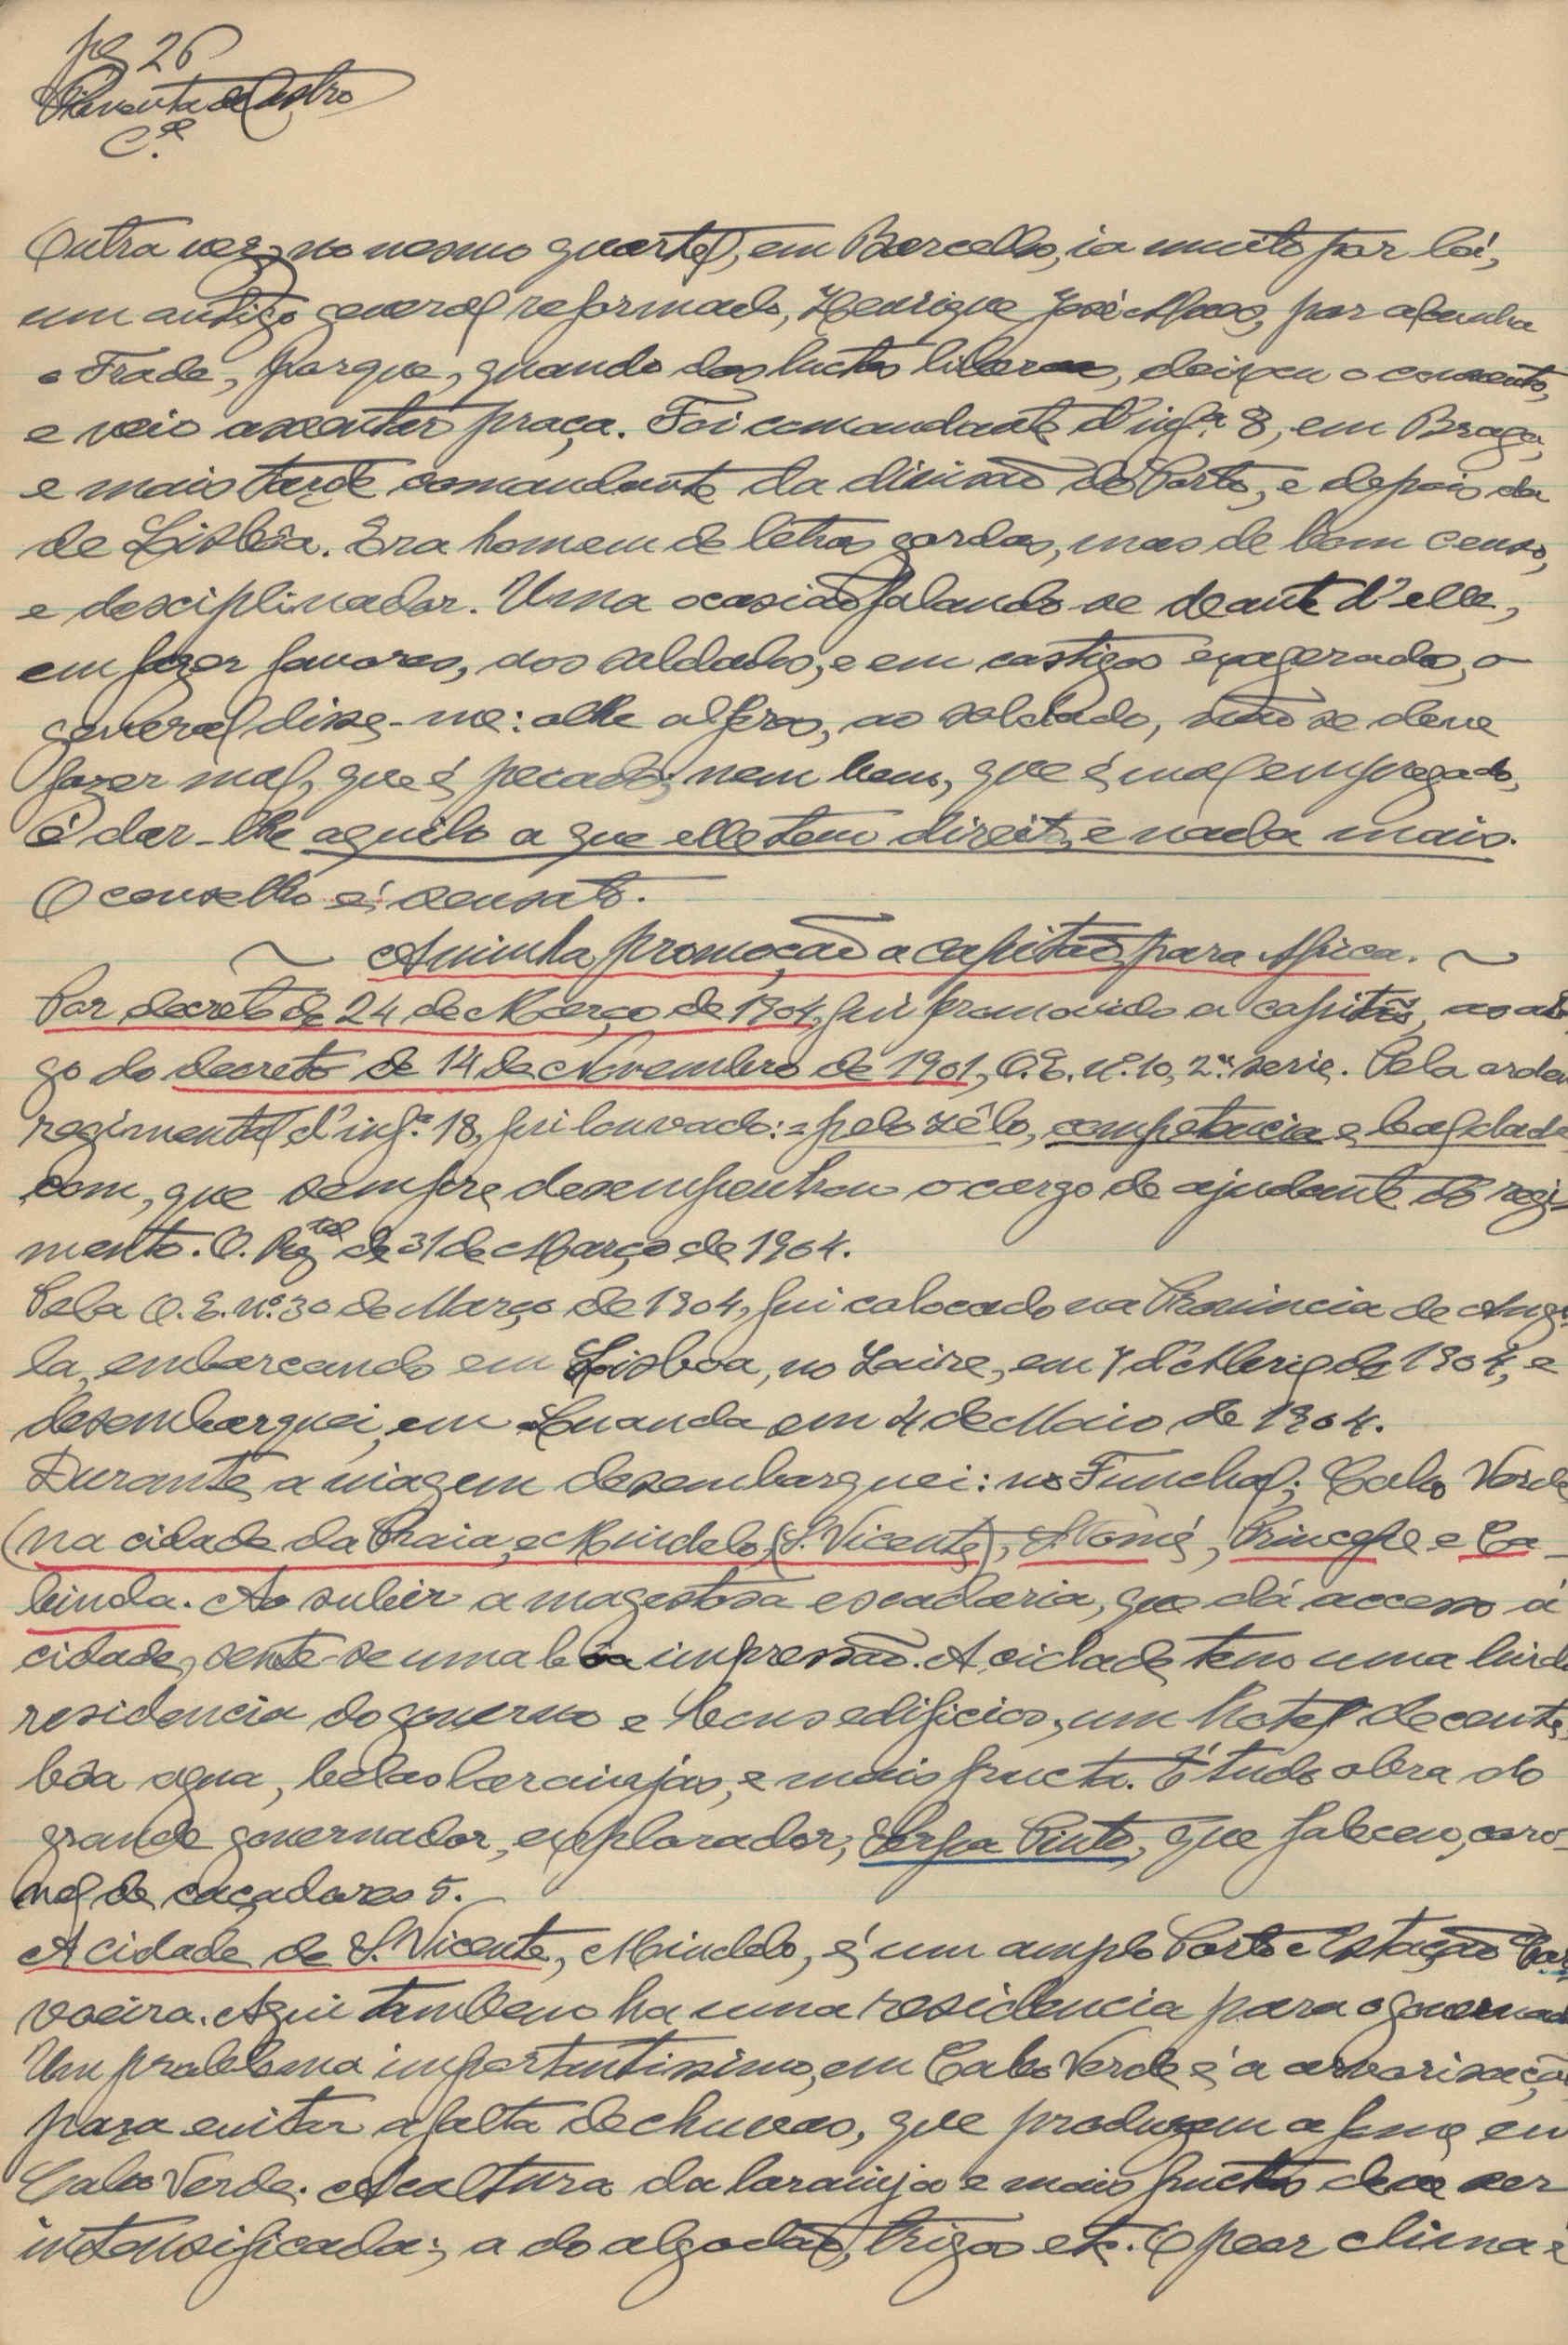 pg 26
Pimenta de Castro
C.el
Outra vez, no mesmo quartel, em Barcellos, ia muito por lá,
um antigo general reformado, Henrique José Alves, por alcunha
o Frade, porque, quando das luctas liberaes, deixou o convento,
e veio assentar praça. Foi comandante d'inf.ª 8, em Braga,
e mais tarde comandante da divisão do Porto, e depois da
de Lisbôa. Era homem de letras gordas, mas de bom censo,
e desciplinador. Uma ocasião falando-se deante d'elle,
em fazer favores, aos soldados, e em castigos exagerados, o
general disse-me: olhe alferes, ao soldado, não se deve
fazer mal, que é pecado; nem bem, que é mal empregado,
é dar-lhe aquilo a que elle tem direito, e nada mais.
O conselho é sensato.
~ A minha promoção a capitão, para Africa. ~
Por decreto de 24 de Março de 1904, fui promovido a capitão, ao abri
go do decreto de 14 de Novembro de 1901, O.E. n.º 10, 2.ª serie. Pela ordem
regimental d'inf.ª 18, fui louvado: = pelo zêlo, competencia e lealdade
com, que sempre desempenhou o cargo de ajudante do regi-
mento. O. Reg.tal de 31 de Março de 1904.
Pela O. E. n.º 30 de Março de 1904, fui colocado na Provincia de Ango
la, embarcando em Lisboa, no Zaire, em 7 d'Abril de 1904, e
desembarquei, em Luanda em 4 de Maio de 1904.
Durante a viagem desembarquei: no Funchal; Cabo Verde
(na cidade da Praia, e Mindelo, (S. Vicente), S. Tomé, Principe e Ca-
binda. Ao subir a magestosa escadaria, que dá accesso á
cidade, sente-se uma bôa impressão. A cidade tem uma linda
residencia do governo e bons edificios, um hotel decente,
bôa agua, belas laranjas, e mais fructa. É tudo obra do
grande governador, explorador, Serpa Pinto, que faleceu, coro-
nel de caçadores 5.
A cidade de S. Vicente, Mindelo, é um amplo Porto e Estação Car
voeira. Aqui tambem ha uma residencia para o governad
Um problema importantissimo, em Cabo Verde é a arvorisação
para evitar a falta de chuvas, que produzem a fome em
Cabo Verde. A cultura da laranja e mais fructas deve ser
intensificada; a do algodão, trigo etc. O peor clima é